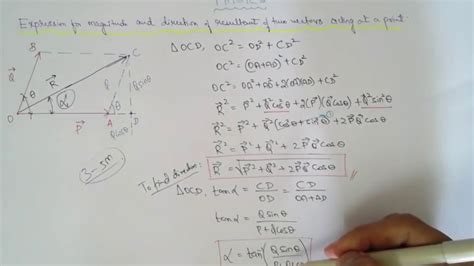 Expression for magnitude and direction of resultant of two vectors acting at a point.
B
C
Q⃗
R⃗
Q
Qsinθ
θ
α
θ
O
P⃗
A
Qcosθ
D
3-5m
△OCD, OC² = OD² + CD²
OC² = (OA+AD)² + CD²
OC² = OA² + AD² + 2(OA)(AD) + CD²
R⃗² = P⃗² + Q⃗²cos²θ + 2(P⃗)(Q⃗cosθ) + Q⃗²sin²θ
R⃗² = P⃗² + Q⃗²(cos²θ + sin²θ) + 2P⃗Q⃗cosθ
R⃗² = P⃗² + Q⃗² + 2P⃗Q⃗cosθ
R⃗ = √P⃗² + Q⃗² + 2P⃗Q⃗cosθ
To find direction:
△OCD, tanα = CD/OD = CD/OA+AD
tanα = Qsinθ/P+Qcosθ
α = tan⁻¹(Qsinθ/